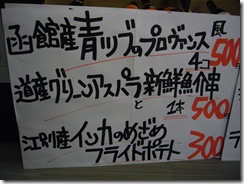 函館産青ツブのプロヴァンス風
4コ500
道産グリーンアスパラと新鮮魚介串
1本500
江別産インカのめざめ
フライドポテト 300